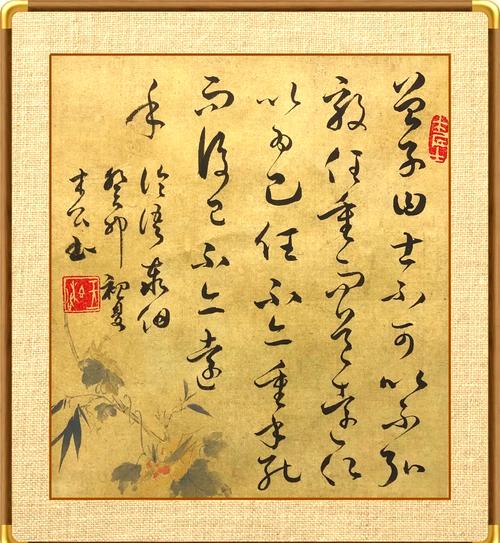 曾子曰士不可以不弘
毅任重而道遠仁
以為己任不亦重乎死
而後已不亦遠
乎
論語泰伯
癸卯初夏
公書